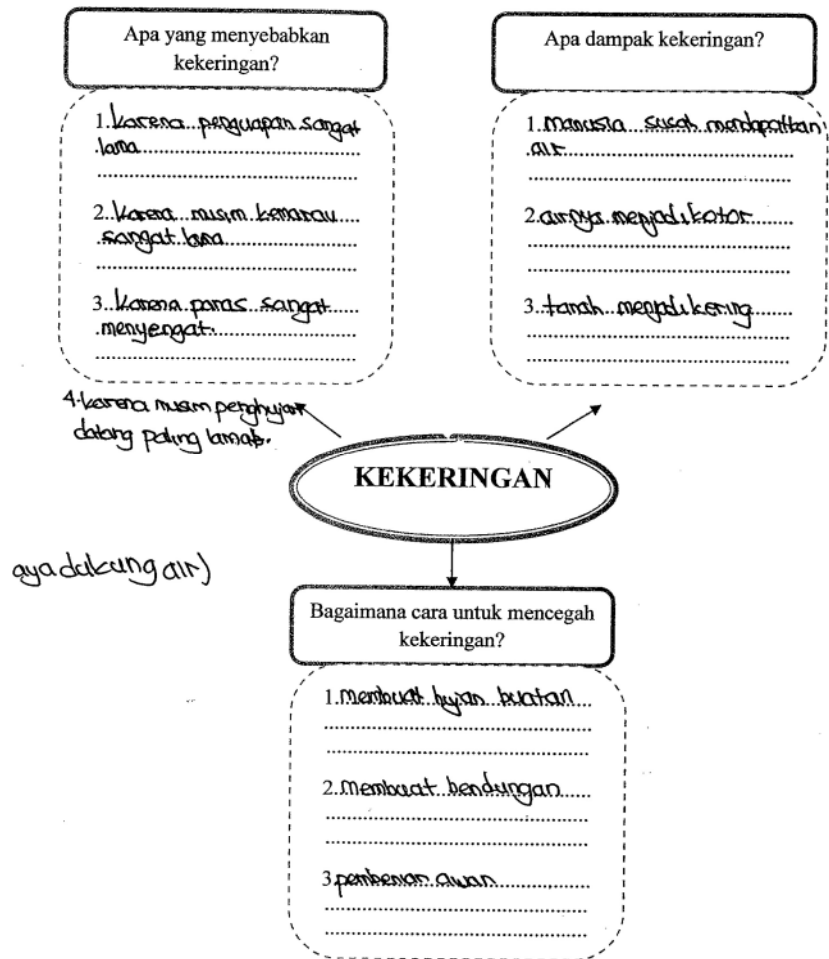 Apa yang menyebabkan
kekeringan?
1. karena penguapan sangat
lama
2. karena musim kemarau
sangat lama
3. karena panas sangat
menyengat.
4. karena musim penghujan
datang paling lama.
Apa dampak kekeringan?
1. manusia susah mendapatkan
air
2. airnya menjadi kotor
3. tanah menjadi kering
KEKERINGAN
aya dukung air)
Bagaimana cara untuk mencegah
kekeringan?
1. membuat hujan buatan
2. membuat bendungan
3. pembenian awan